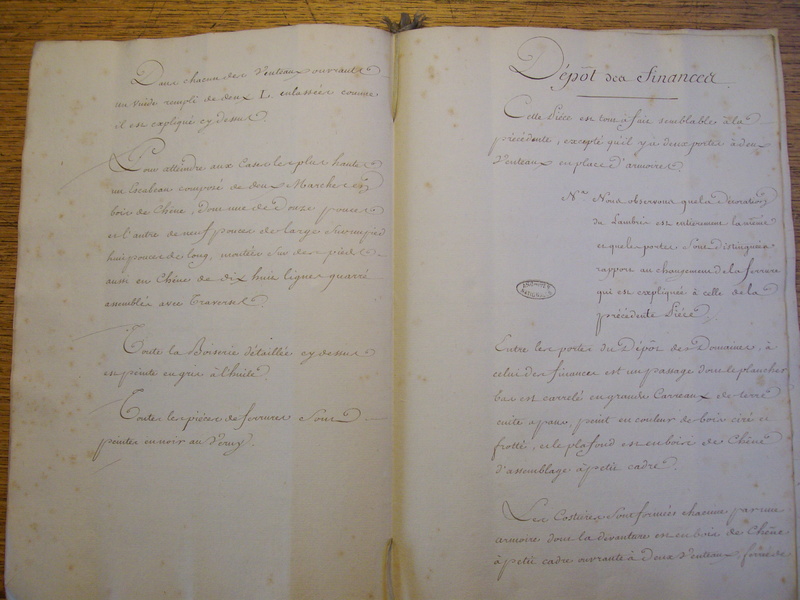 Dans chacun des Venteaux ouvrants
un vuide rempli de deux L. enlassées comme
il est expliqué cy dessus.
Pour atteindre aux Cases les plus hautes
un Escabeau composé de deux Marches en
bois de Chêne, dont une de Douze pouces
et l'autre de neuf pouces de large sur un pied
huit pouces de long, montées sur des pieds
aussi en Chêne de dix huit lignes quarré
assemblés avec Traverses.
Toute la Boiserie détaillée cy dessus
est peinte en gris à l'huile.
Toutes les pièces de ferrures sont
peintes en noir au Verny.
Dépôt des Finances
Cette Pièce est tout à fait semblable à la
précédente, excepté qu'il y a deux portes à deux
Venteaux en place d'armoires.
Nª. Nous observons que la Décoration
du Lambris est entièrement la même
et que les portes sont distinguées
rapport au changement de la ferrure
qui est expliquée à celle de la
précédente Pièce.
ARCHIVES
NATIONALES
Entre les portes du Dépôt des Domaines, à
celui des finances est un passage dont le plancher
bas est carrelé en grands Carreaux de terre
cuite à pans, peint en couleur de bois ciré et
frotté, et le plafond est en bois de Chêne
d'assemblage à petit cadre.
Les Costures sont formées chacune par une
armoire dont la devanture est en bois de Chêne
à petit cadre ouvrante à deux Venteaux, ferrée de